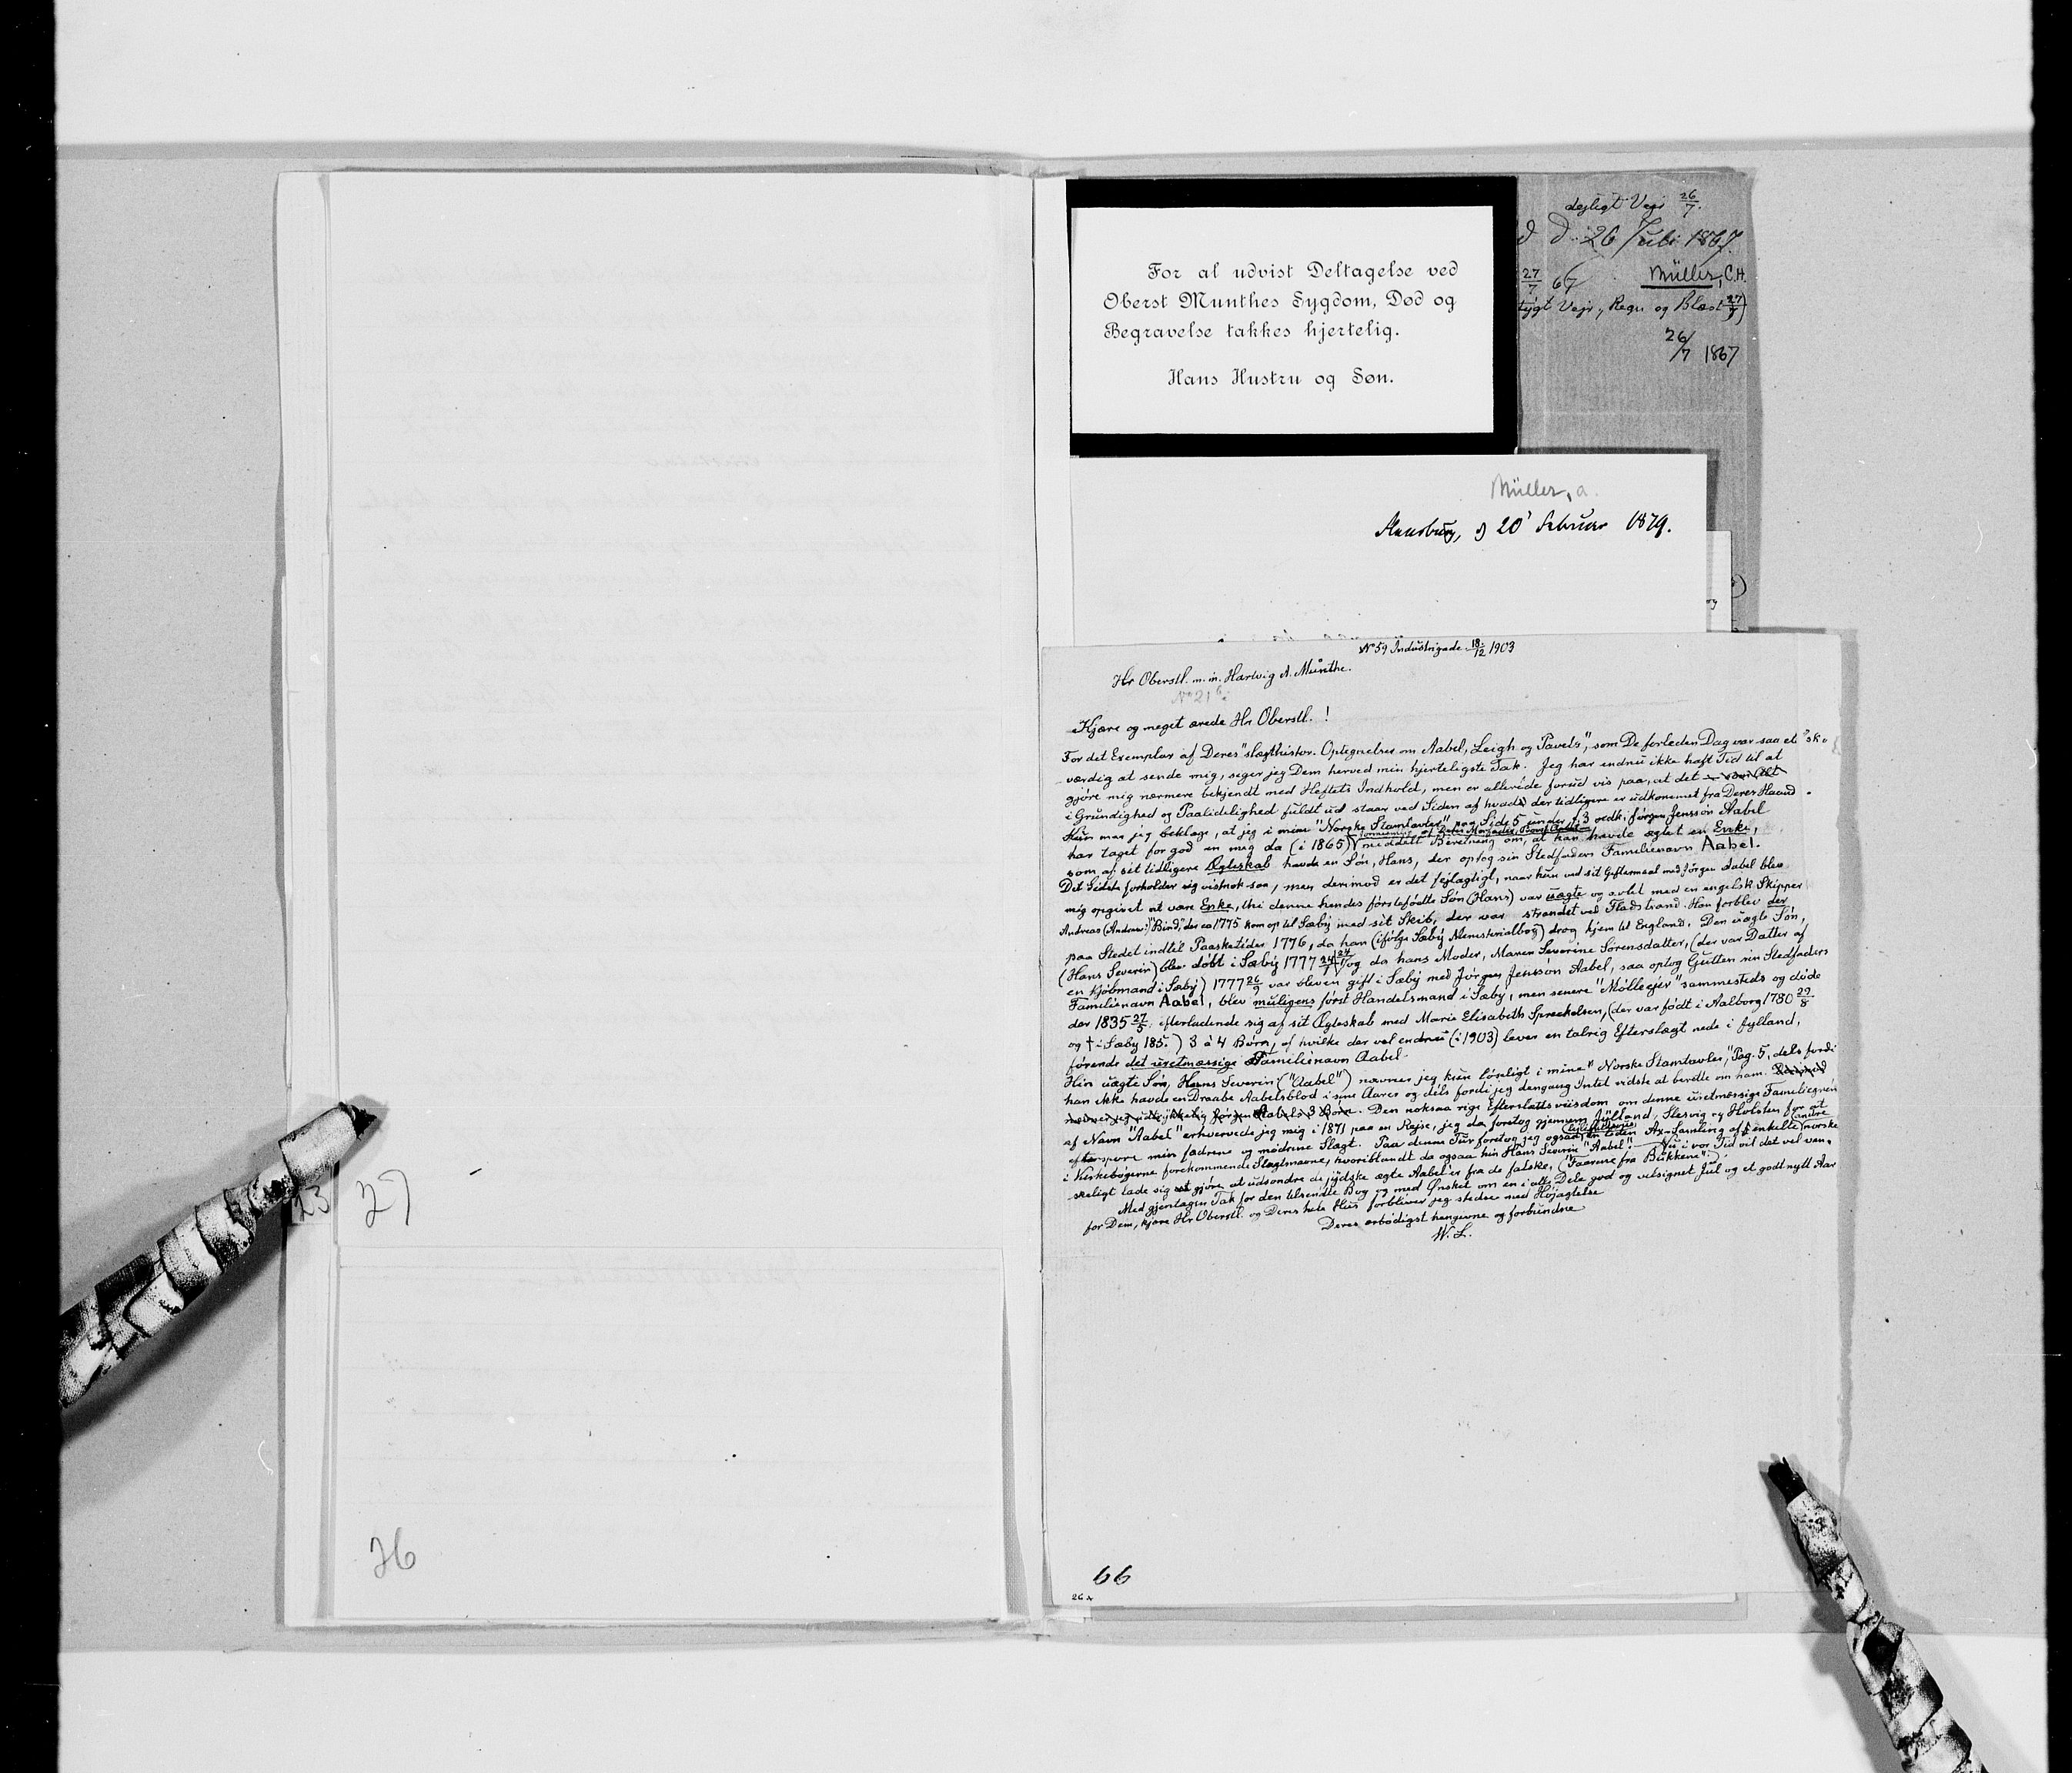 For al udvist Deltagelse ved
Oberst Munthes Sygdom, Død og
Begravelse takkes hjertelig.
Hans Hustru og Søn.
dejligt Vejr 26/7.
d. 26 Juli 1867
27/7 67 Müller, C.H.
Vejr, Regn og Blæst 27/7)
26/7 1867
Müller, a.
20' Februar 1879.
No 59 Industrigade 18/12 1903
Hr Oberstl. m. m. Hartvig A. Munthe.
No 21
Kjære og meget ærede Hr Oberstl.!
For det Exemplar af Deres "slægthistor. Optegnelser om Aabel, Leigh og Pavels", som De forleden Dag var saa elsk-
værdig at sende mig, siger jeg Dem herved min hjerteligste Tak. Jeg har endnu ikke haft Tid til at
gjøre mig nærmere bekjendt med Heftets Indhold, men er allerede forud vis paa, at det
i Grundighed og Paalidelighed fuldt ud staar ved Siden af hvad der tidligere er udkommet fra Deres Haand.
Kun maa jeg beklage, at jeg i mine "Norske Stamtavler" paa Side 5 under 3 Jørgen Jenssøn Aabel
har taget for god en mig da (i 1865) meddelt Beretning om, at han havde ægtet en Enke,
som af sit tidligere Ægteskab havde en Søn, Hans, der optog sin Stedfaders Familienavn Aabel.
Det Sidste forholder sig vistnok saa, men derimod er det fejlagtigt, naar hun ved sit Giftermaal med Jørgen Aabel blev
mig opgivet at være Enke, thi denne hendes førstefødte Søn (Hans) var uægte og avlet med en engelsk Skipper
Andreas (Andrew) "Bind", der ca 1775 kom op til Sæby med sit Skib, der var strandet ved Fladstrand. Han forblev der
paa Stedet indtil Paasketider 1776, da han (ifølge Sæby Ministerialbog) drog hjem til England. Den uægte Søn,
(Hans Severin) blev døbt i Sæby 1777 24/1 og da hans Moder, Maren Severine Sørensdatter, (der var Datter af
en Kjøbmand i Sæby) 1777 26/9 var bleven gift i Sæby med Jørgen Jenssøn Aabel, saa optog Gutten sin Stedfaders
Familienavn Aabel, blev muligens først Handelsmand i Sæby, men senere "Mølleejer" sammesteds og døde
der 1835 27/5, efterladende sig af sit Ægteskab med Marie Elisabeth Spreckelsen, (der var født i Aalborg 1780 29/8
og † i Sæby 185.) 3 à 4 Børn, af hvilke der vel endnu (i 1903) lever en talrig Efterslægt nede i Jylland,
førende det uretmæssige Familienavn Aabel.
Hin uægte Søn, Hans Severin ("Aabel") nævner jeg kun løseligt i mine "Norske Stamtavler", Pag. 5, dels fordi
han ikke havde en Draabe Aabelsblod i sine Aarer og dels fordi jeg dengang Intet vidste at berette om ham.
nævner jeg udtrykkelig Jørgen Aabels 3 Børn. Den noksaa rige Efterslætts viisdom om denne uretmæssige Familiegren
af Navn "Aabel" erhvervede jeg mig i 1871 paa en Rejse, jeg da foretog gjennem Jylland, Slesvig og Holsten for at
efterspore min fædrene og mødrene Slægt. Paa denne Tur foretog jeg ogsaa en liden Ax-Samling af enkelte andre norske
i Kirkebøgerne forekommende Slægtnavne, hvoriblandt da ogsaa hin Hans Severin "Aabel". Nu i vor Tid vil det vel van-
skeligt lade sig gjøre, at udsondre de jydske ægte Aabel'er fra de falske, ("Faarene fra Bukkene").
Med gjentagen Tak for den tilsendte Bog og med Ønsket om en i alle Dele god og velsignet Jul og et godt nytt Aar
for Dem, kjære Hr Oberstl. og Deres hele Hus forbliver jeg stedse med Højagtelse
Deres ærbødigst hengivne og forbundne
W. L.
23
27
26
66
26 x